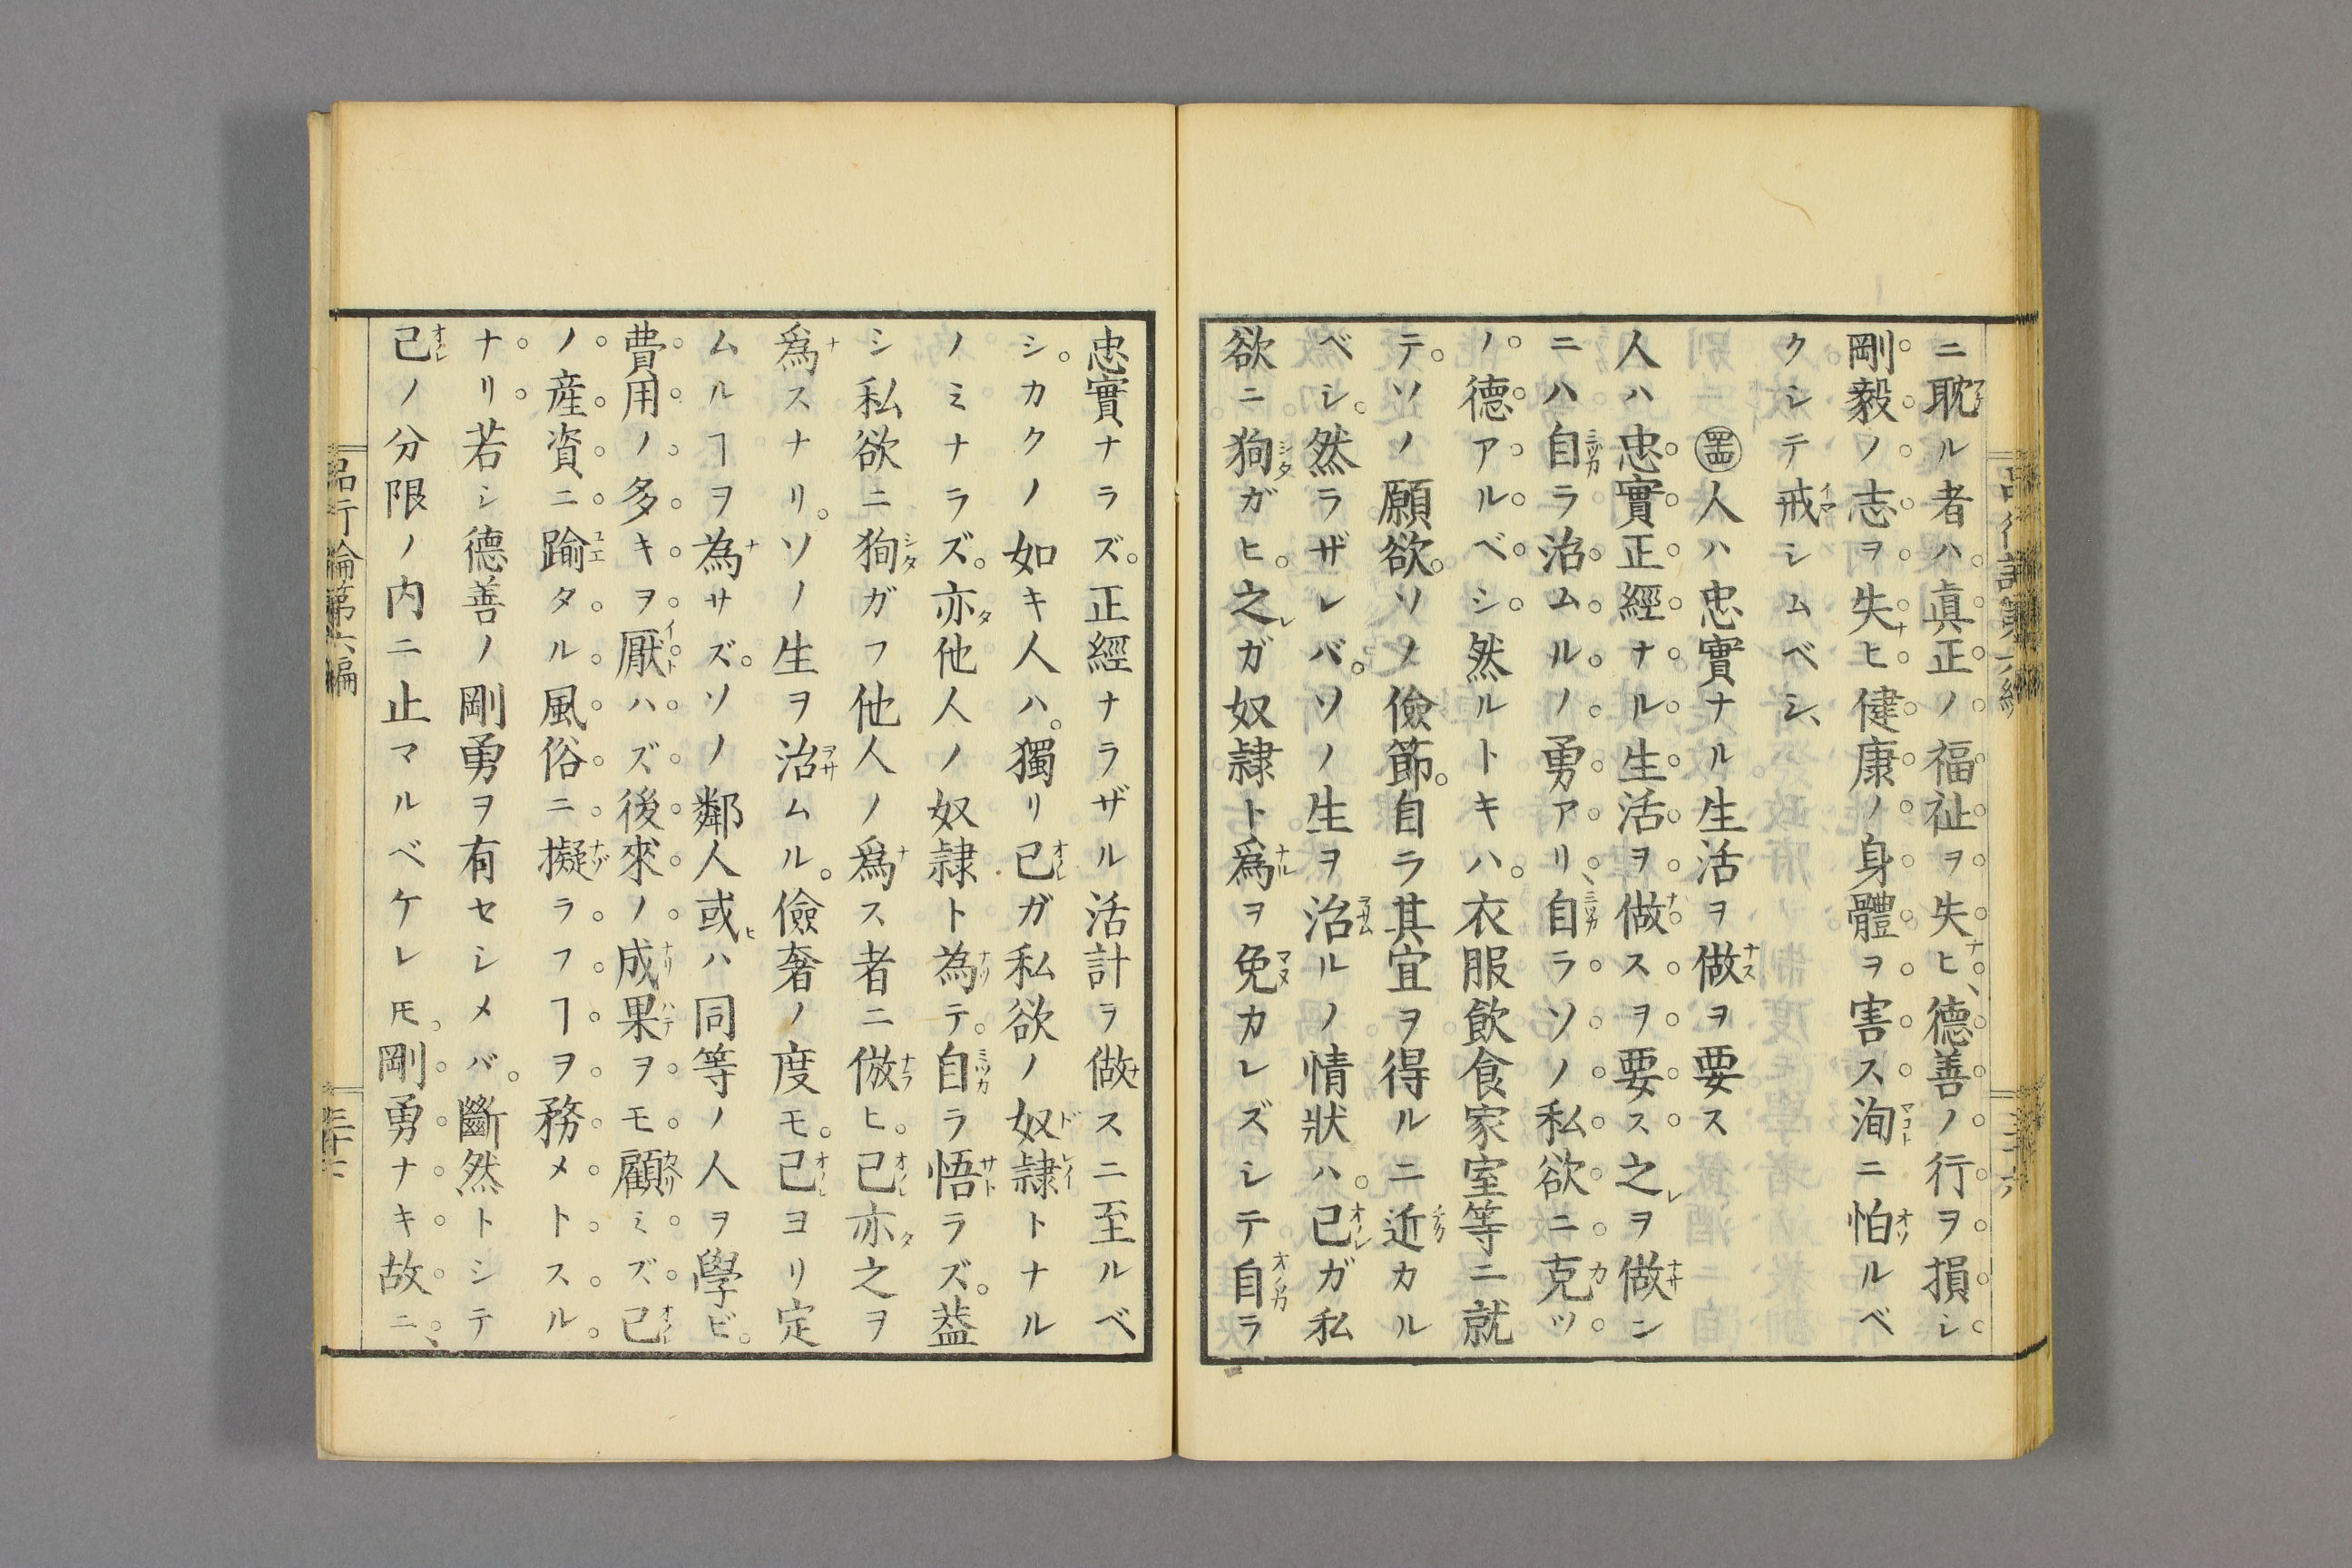 ニ耽ル者ハ眞正ノ福祉ヲ失ヒ、德善ノ行ヲ損シ
剛毅ノ志ヲ失ヒ健康ノ身體ヲ害ス洵ニ怕ルベ
クシテ戒シムベシ、
人ハ忠實ナル生活ヲ做ヲ要ス
人ハ忠實正經ナル生活ヲ做スヲ要ス之ヲ做サン
ニハ自ラ治ムルノ勇アリ、自ラソノ私欲ニ克ツ
ノ德アルベシ然ルトキハ。衣服飲食家室等ニ就
テソノ願欲。ソノ儉節。自ラ其宜ヲ得ルニ近カル
ベシ。然ラザレバ。ソノ生ヲ治ルノ情狀ハ。己ガ私
欲ニ狥ガヒ。之ガ奴隷ト爲ヲ免カレズシテ自ラ
忠實ナラズ。正經ナラザル活計ヲ做スニ至ルベ
シ。カクノ如キ人ハ。獨リ己ガ私欲ノ奴隷トナル
ノミナラズ。亦他人ノ奴隷ト為テ。自ラ悟ラズ。葢
シ私欲ニ狥ガフ他人ノ爲ス者ニ倣ヒ。己亦之ヲ
爲スナリ。ソノ生ヲ治ムル。儉奢ノ度モ。己ヨリ定
ムルヿヲ為サズ。ソノ鄰人或ハ同等ノ人ヲ學ビ。
費用ノ多キヲ厭ハズ後來ノ成果ヲモ顧ミズ己
ノ産資ニ踰タル風俗ニ擬ラフヿヲ務メトスル
ナリ若シ德善ノ剛勇ヲ有セシメバ。斷然トシテ
己ノ分限ノ内ニ止マルベケレ𪜈。剛勇ナキ故ニ、
品行論第六編